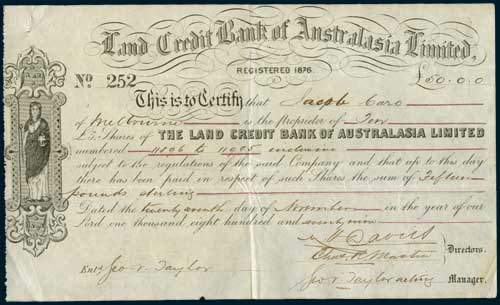 Land Credit Bank of Australasia Limited,
REGISTERED 1876.
No. 252
£50.0.0
This is to Certify that Jacob Caro
of Melbourne is the Proprietor of Ten
£5 Shares of THE LAND CREDIT BANK OF AUSTRALASIA LIMITED
numbered to inclusive
subject to the regulations of the said Company and that up to this day
there has been paid in respect of such Shares the sum of Fifteen
pounds sterling
Dated the twenty ninth day of November in the year of our
Lord one thousand eight hundred and
Davies
Chas. R. Martin
Directors.
Entd. Geo. V. Taylor
Geo. V. Taylor acting Manager.